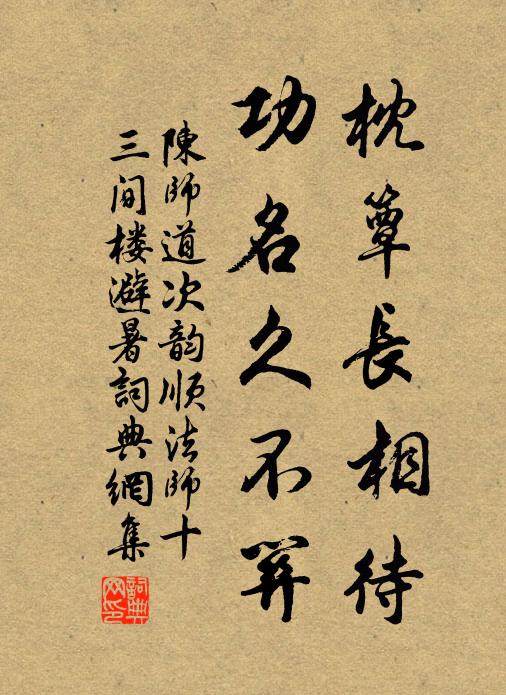 枕簟長相待
功名久不筭
陳師道次韵順法師十
三间楼避暑詞典網集
詞典
网印